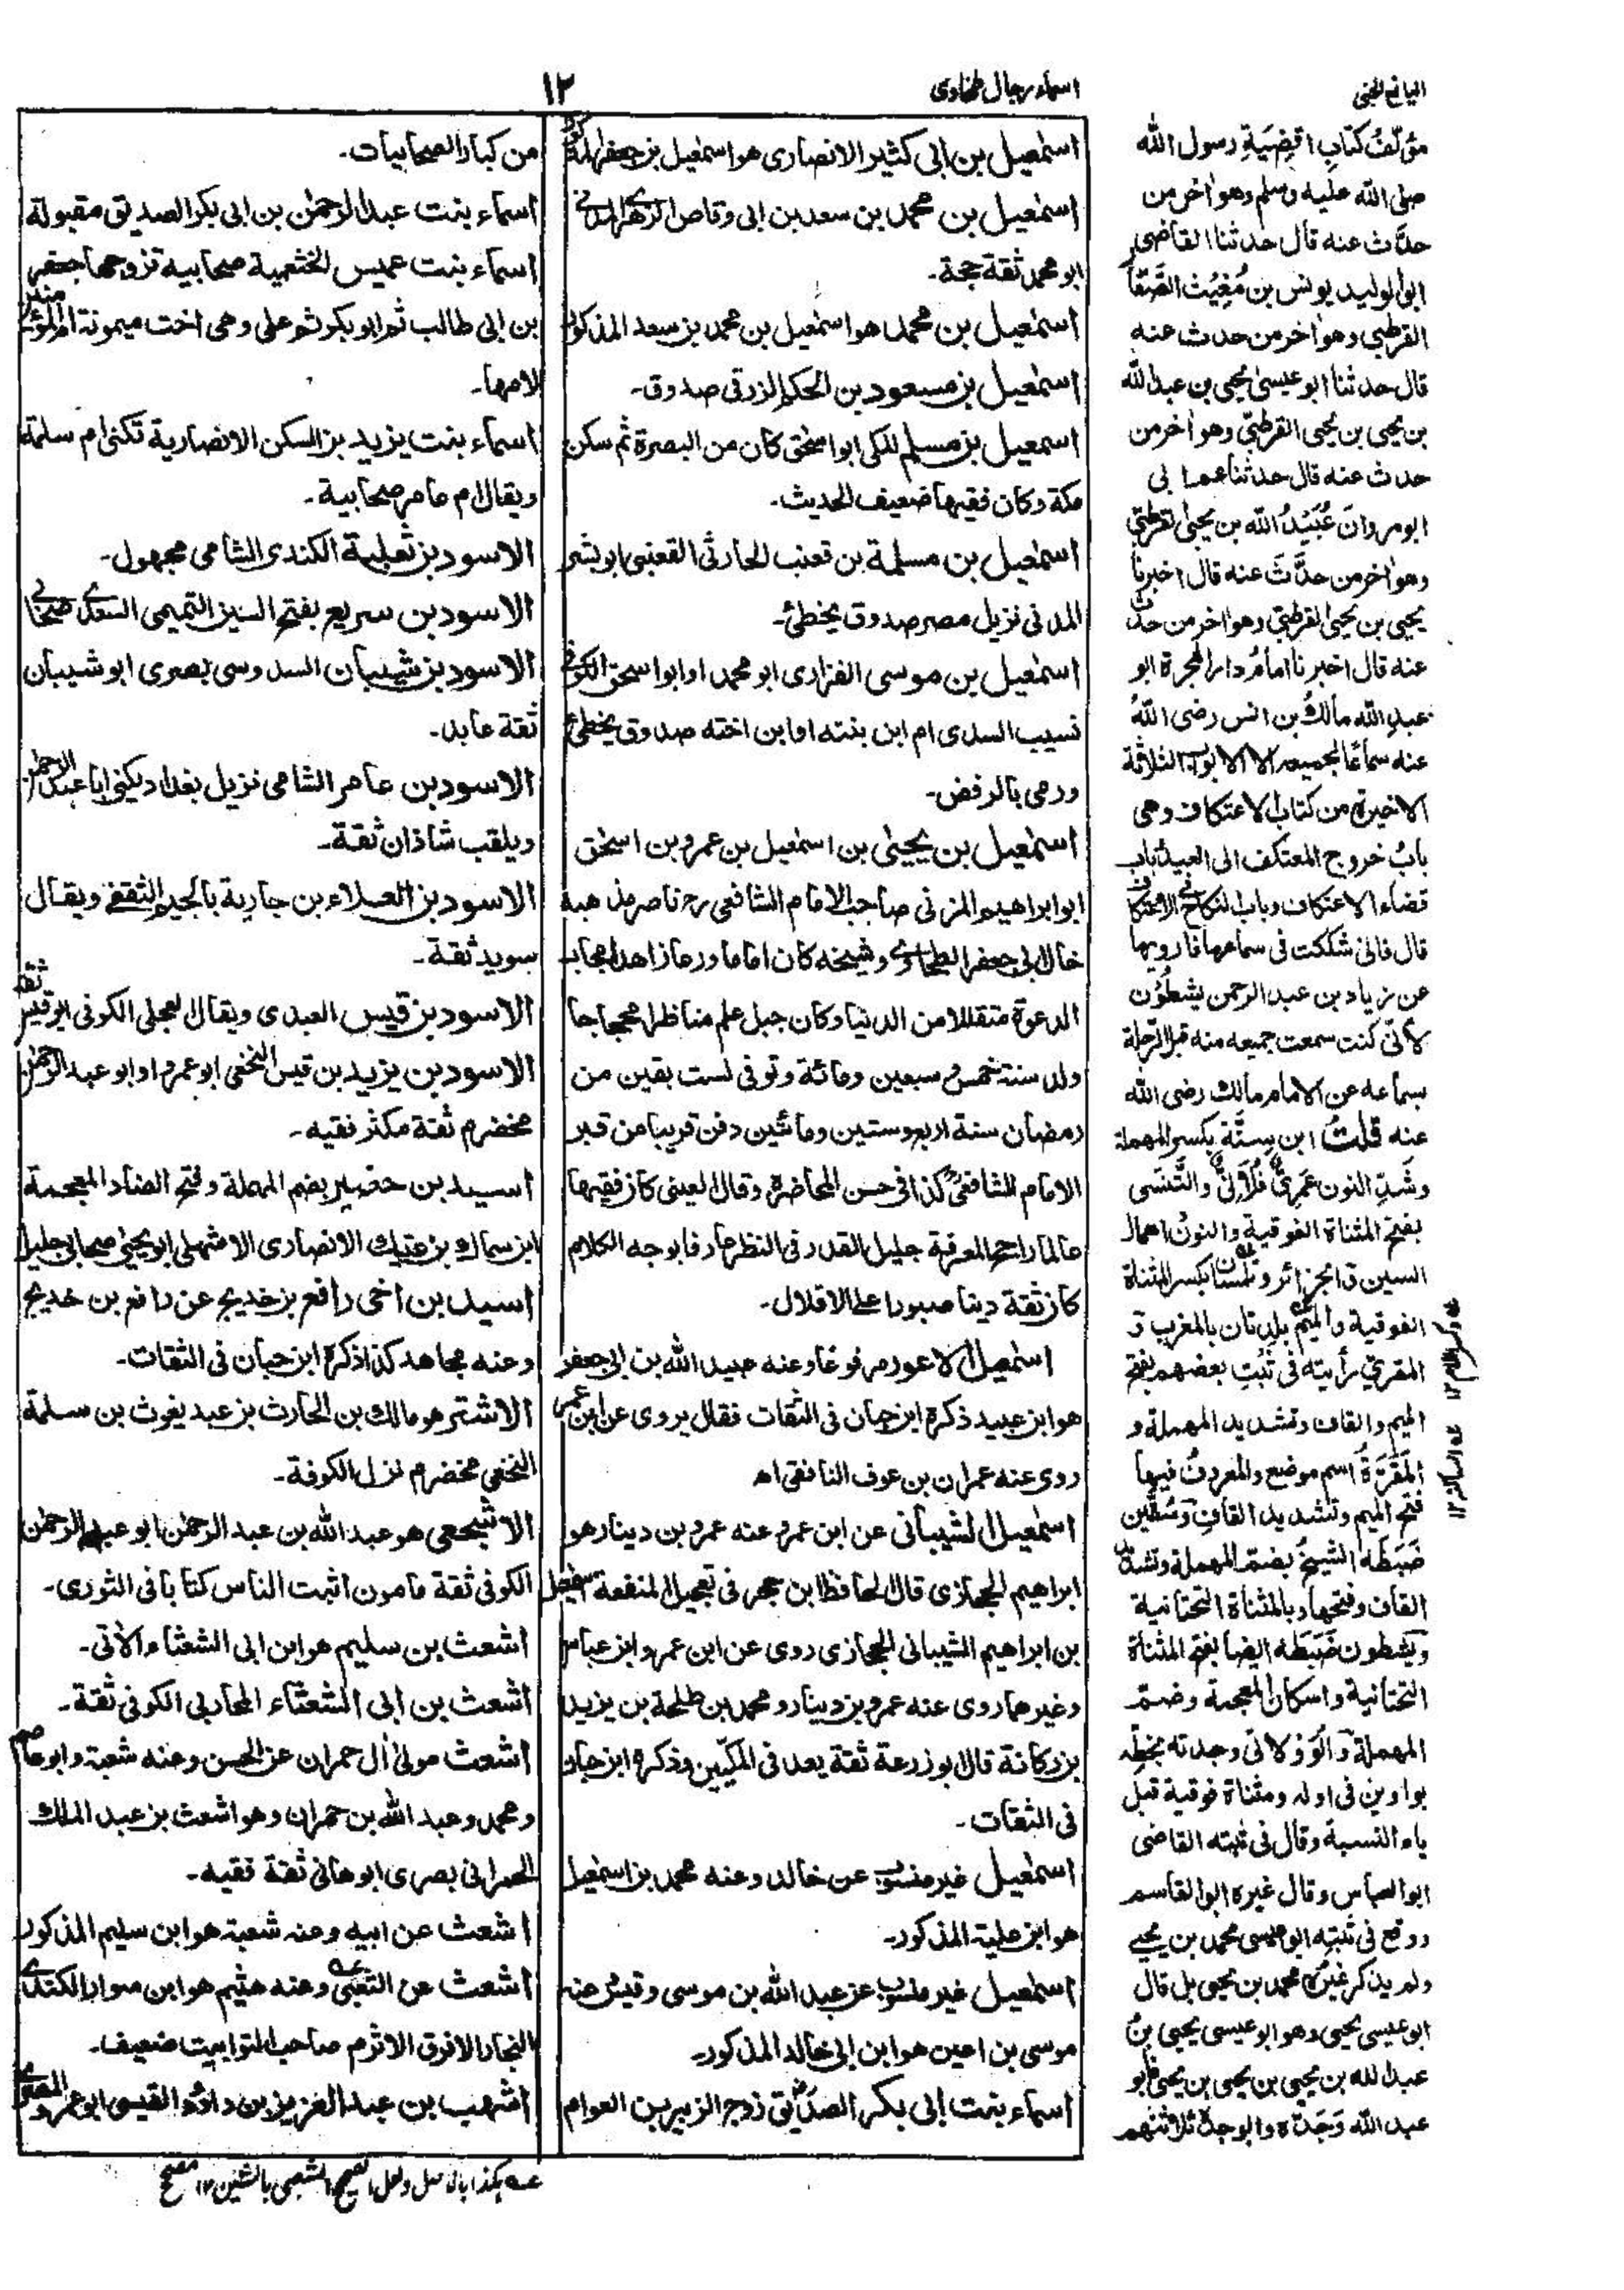 اليانع الجنى
اسماء رجال طحاوى
١٢
اسمٰعيل بن ابى كثير الانصارى هو اسمٰعيل بن جعفر
اسمٰعيل بن محمد بن سعد بن ابى وقاص الزهرى المدنى
ابو محمد ثقة حجة۔
اسمٰعيل بن محمد هو اسمٰعيل بن محمد بن سعد المذكور
اسمٰعيل بن مسعود بن الحكم الزرقى صدوق۔
اسمعيل بن مسلم المكى ابو اسحٰق كان من البصرة ثم سكن
مكة وكان فقيها ضعيف الحديث۔
اسمٰعيل بن مسلمة بن قعنب الحارثى القعنبى ابو بشر
المدنى نزيل مصر صدوق يخطئ۔
اسمٰعيل بن موسى الفزارى ابو محمد او ابو اسحق الكوفى
نسيب السدى ام ابن بنته او ابن اخته صدوق يخطئ
ورمى بالرفض۔
اسمٰعيل بن يحيٰى بن اسمٰعيل بن عمرو بن اسحٰق
ابو ابراهيم المزنى صاحب الامام الشافعى رح ناصر مذهبه
خال ابى جعفر الطحاوى وشيخه كان اماما ورعا زاهدا مجاب
الدعوة متقللا من الدنيا وكان جبل علم مناظرا محجاجا
ولد سنة خمس وسبعين ومائة وتوفى لست بقين من
رمضان سنة اربع وستين ومائتين دفن قريبا من قبر
الامام الشافعى كذا فى حسن المحاضرة وقال العينى كان فقيها
عالما راجح المعرفة جليل القدر فى النظر عارفا بوجه الكلام
كان ثقة دينا صبورا على الاقلال۔
اسمٰعيل الاعور مرفوعا وعنه عبيد الله بن ابى جعفر
هو ابن عبيد ذكره ابن حبان فى الثقات فقال يروى عن ابن عمر
روى عنه عمران بن عوف النافقى اھ
اسمٰعيل الشيبانى عن ابن عمر وعنه عمرو بن دينار هو
ابراهيم الحجازى قال الحافظ ابن حجر فى تعجيل المنفعة اسمٰعيل
بن ابراهيم الشيبانى الحجازى روى عن ابن عمر وابن عباس
وغيرهما روى عنه عمرو بن دينار ومحمد بن طلحة بن يزيد
بن ركانة قال ابو زرعة ثقة يعد فى المكيين وذكره ابن حبان
فى الثقات۔
اسمٰعيل غير منسوب عن خالد وعنه محمد بن اسمٰعيل
هو ابن علية المذكور۔
اسمٰعيل غير منسوب عن عبد الله بن موسى وقيس عنه
موسى بن اعين هو ابن ابى خالد المذكور۔
اسماء بنت ابى بكر الصديق زوج الزبير بن العوام
من كبار الصحابيات۔
اسماء بنت عبد الرحمٰن بن ابى بكر الصديق مقبولة
اسماء بنت عميس الخثعمية صحابية تزوجها جعفر
بن ابى طالب ثم ابو بكر ثم على وهى اخت ميمونة ام المؤمنين
لامها۔
اسماء بنت يزيد بن السكن الانصارية تكنى ام سلمة
ويقال ام عامر صحابية۔
الاسود بن ثعلبة الكندى الشامى مجهول۔
الاسود بن سريع بفتح السين التميمى السعدى صحابى
الاسود بن شيبان السدوسى بصرى ابو شيبان
ثقة عابد۔
الاسود بن عامر الشامى نزيل بغداد يكنى ابا عبد الرحمٰن
ويلقب شاذان ثقة۔
الاسود بن العلاء بن جارية بالجيم الثقفى ويقال
سويد ثقة۔
الاسود بن قيس العبدى ويقال العجلى الكوفى ابو قيس ثقة
الاسود بن يزيد بن قيس النخعى ابو عمرو او ابو عبد الرحمٰن
مخضرم ثقة مكثر فقيه۔
اسيد بن حضير بضم المهملة وفتح الضاد المعجمة
ابن سماك بن عتيك الانصارى الاشهلى ابو يحيٰى صحابى جليل
اسيد بن اخى رافع بن خديج عن رافع بن خديج
وعنه مجاهد كذا ذكره ابن حبان فى الثقات۔
الاشتر هو مالك بن الحارث بن عبد يغوث بن سلمة
النخعى مخضرم نزل الكوفة۔
الاشجعى هو عبد الله بن عبد الرحمٰن ابو عبد الرحمٰن
الكوفى ثقة مامون اثبت الناس كتابا فى الثورى۔
اشعث بن سليم هو ابن ابى الشعثاء الاٰتى۔
اشعث بن ابى الشعثاء المحاربى الكوفى ثقة۔
اشعث مولىٰ اٰل حمران عن الحسن وعنه شعبة وابو عاصم
ومحمد وعبد الله بن حمران وهو اشعث بن عبد الملك
الحمرانى بصرى ابو هانى ثقة فقيه۔
اشعث عن ابيه وعنه شعبة هو ابن سليم المذكور
اشعث عن التعبى وعنه هشيم هو ابن سوار الكندى
النجار الافرق الاثرم صاحب التوابيت ضعيف۔
اشهب بن عبد العزيز بن داؤد القيسى ابو عمرو المصرى
عه هكذا بالاصل ولعل الصحيح الشعبى بالشين ١٢ مصحح
مؤلف كتاب اقضية رسول الله
صلى الله عليه وسلم وهو اخر من
حدث عنه قال حدثنا القاضى
ابو الوليد يونس بن مغيث الصفار
القرطبى وهو اخر من حدث عنه
قال حدثنا ابو عيسىٰ يحيى بن عبد الله
بن يحيى بن يحيى القرطبى وهو اخر من
حدث عنه قال حدثنا عم ابى
ابو مروان عبيد الله بن يحيىٰ القرطبى
وهو اخر من حدث عنه قال اخبرنا
يحيى بن يحيى القرطبى وهو اخر من حدث
عنه قال اخبرنا امام دار الهجرة ابو
عبد الله مالك بن انس رضى الله
عنه سماعا لجميعه الا الابواب الثلاثة
الاخيرة من كتاب الاعتكاف وهى
باب خروج المعتكف الى العيد باب
قضاء الاعتكاف وباب النكاح فى الاعتكاف
قال فانى شككت فى سماعها فارويها
عن زياد بن عبد الرحمن يشطون
لانى كنت سمعت جميعه منه قبل الرحلة
بسماعه عن الامام مالك رضى الله
عنه قلت ابن بسنة بكسر المهملة
وشد النون عمرى فلانى والتنسى
بفتح المثناة الفوقية والنون اهمال
السين ق الجزائر وتلمسان بكسر المثناة
الفوقية والميم بلدتان بالمغرب ق
المقرى رأيته فى ثبت بعضهم بفتح
الميم والقاف وتشديد المهملة و
المقرة اسم موضع والمعروف فيها
فتح الميم وتشديد القاف وسقين
ضبطه الشيخ بضم المهملة وتشديد
القاف وفتحها وبالمثناة التحتانية
ويشطون ضبطه ايضا بفتح المثناة
التحتانية واسكان المعجمة وضم
المهملة والولاتى وجدته بخطه
بواوين فى اوله ومثناة فوقية قبل
ياء النسبة وقال فى ثبته القاضى
ابو العباس وقال غيره ابو القاسم
ووقع فى ثبته ابو عيسى محمد بن يحيى
ولم يذكر غيره محمد بن يحيى بل قال
ابو عيسى يحيى وهو ابو عيسى يحيى بن
عبد الله بن يحيى بن يحيى بن يحيى فابو
عبد الله وجده وابو جده ثلاثتهم